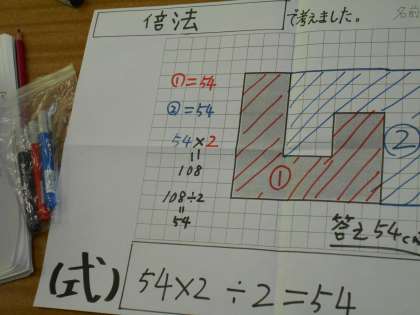 倍法
で考えました。
名前
①=54
②=54
54×2
=
108
108÷2
=
54
①
②
答え54cm
(式)
54×2÷2=54